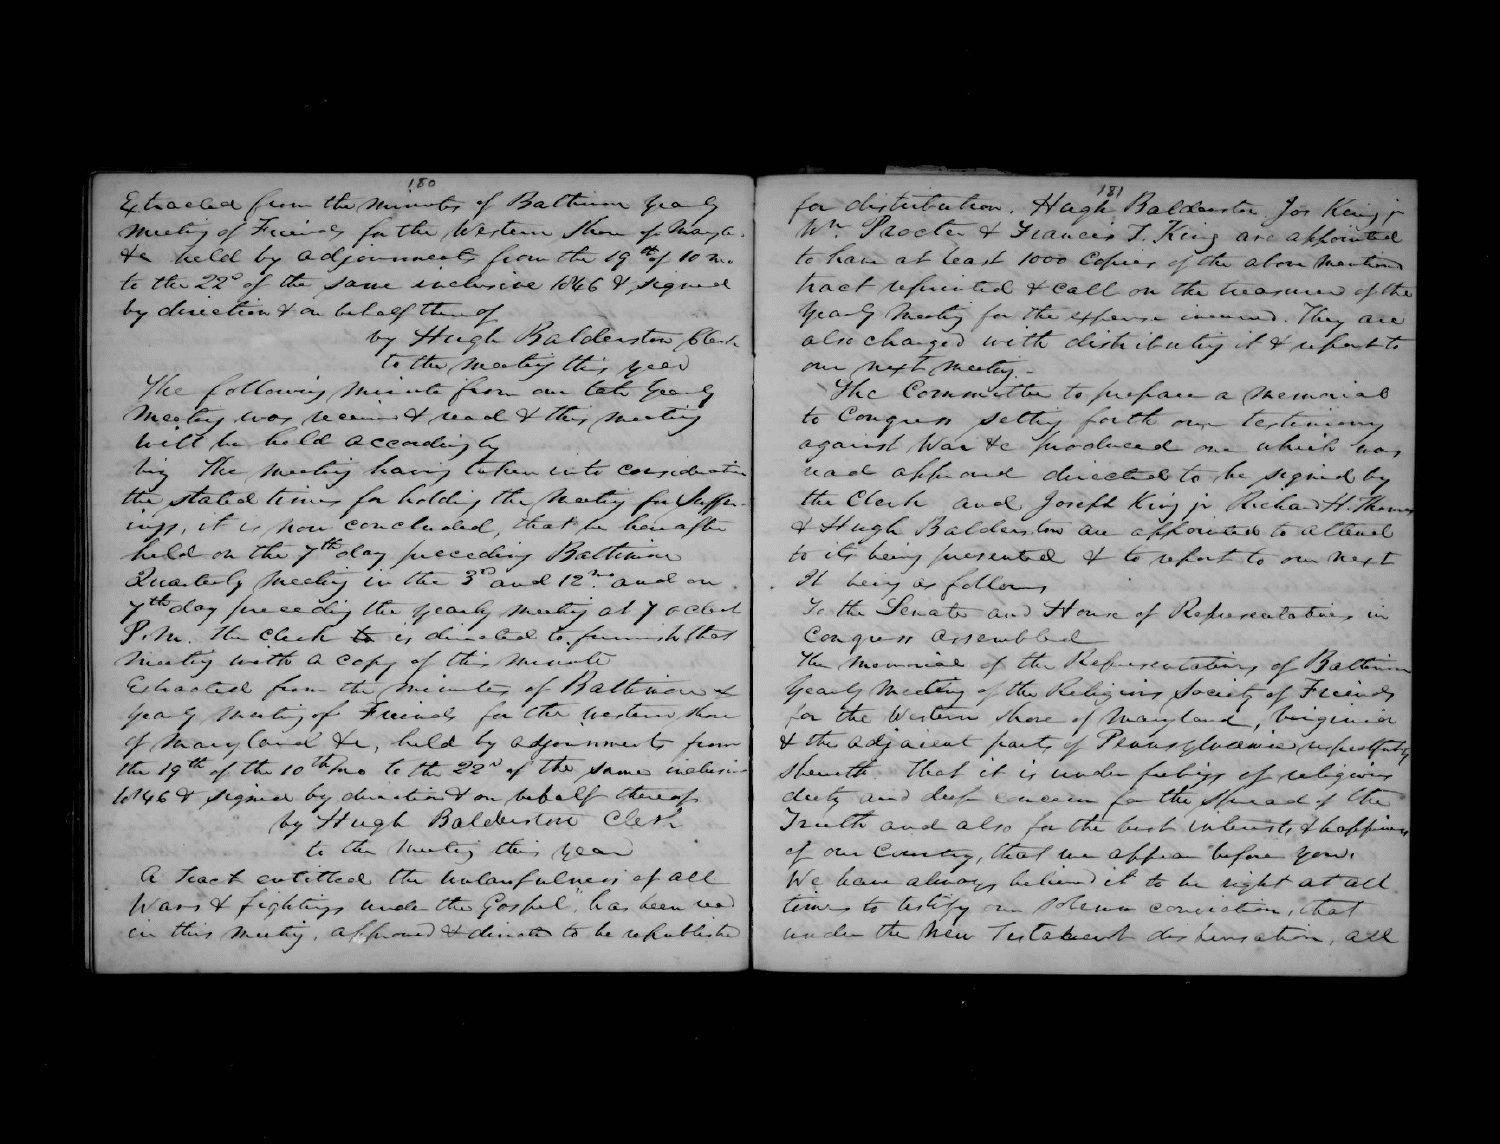 180
Extracted from the minutes of Baltimore Yearly
Meeting of Friends for the Western Shore of Maryld.
&c held by adjournments from the 19th of 10 mo
to the 22d of the same inclusive 1846 & signed
by direction & on behalf thereof
by Hugh Balderston Clerk
to the meeting this year
The following minute from our late Yearly
Meeting was received & read & this meeting
will be held accordingly
viz The meeting having taken into consideration
the stated times for holding the Meeting for Suffer-
ings, it is now concluded, that be hereafter
held on the 7th day preceding Baltimore
Quarterly Meeting in the 3d and 12mo and on
7th day preceding the yearly meeting at 7 o clock
P.M. the clerk to is directed to furnish that
meeting with a copy of this minute
Extracted from the minutes of Baltimore
Yearly Meeting of Friends for the western shore
of Maryland &c, held by adjournments from
the 19th of the 10th mo to the 22d of the same inclusive
1846 & signed by direction & on behalf thereof
by Hugh Balderston Clerk
to the Meeting this year
A Tract entitled the Unlawfulness of all
Wars & fightings under the Gospel" has been read
in this meeting, approved & directed to be republished
181
for distribution. Hugh Balderston Jos King jr
Wm. Procter & Francis T. King are appointed
to have at least 1000 Copies of the above mentioned
tract reprinted & call on the treasurer of the
Yearly Meeting for the expense incurred. They are
also charged with distributing it & report to
our next meeting.
The Committee to prepare a memorial
to Congress setting forth our testimony
against War &c produced one which was
read approved directed to be signed by
the Clerk and Joseph King jr Richard H. Thomas
& Hugh Balderston are appointed to attend
to its being presented & to report to our next
It being as follows
To the Senate and House of Representatives in
Congress assembled
The memorial of the Representatives of Baltimore
Yearly Meeting of the Religious Society of Friends
for the Western Shore of Maryland, Virginia
& the adjacent parts of Pennsylvania respectfully
sheweth. That it is under feelings of religious
duty and deep concern for the spread of the
Truth and also for the best interests & happiness
of our Country, that we appear before you.
We have always believed it to be right at all
times to testify our solemn conviction, that
under the New Testament dispensation, all